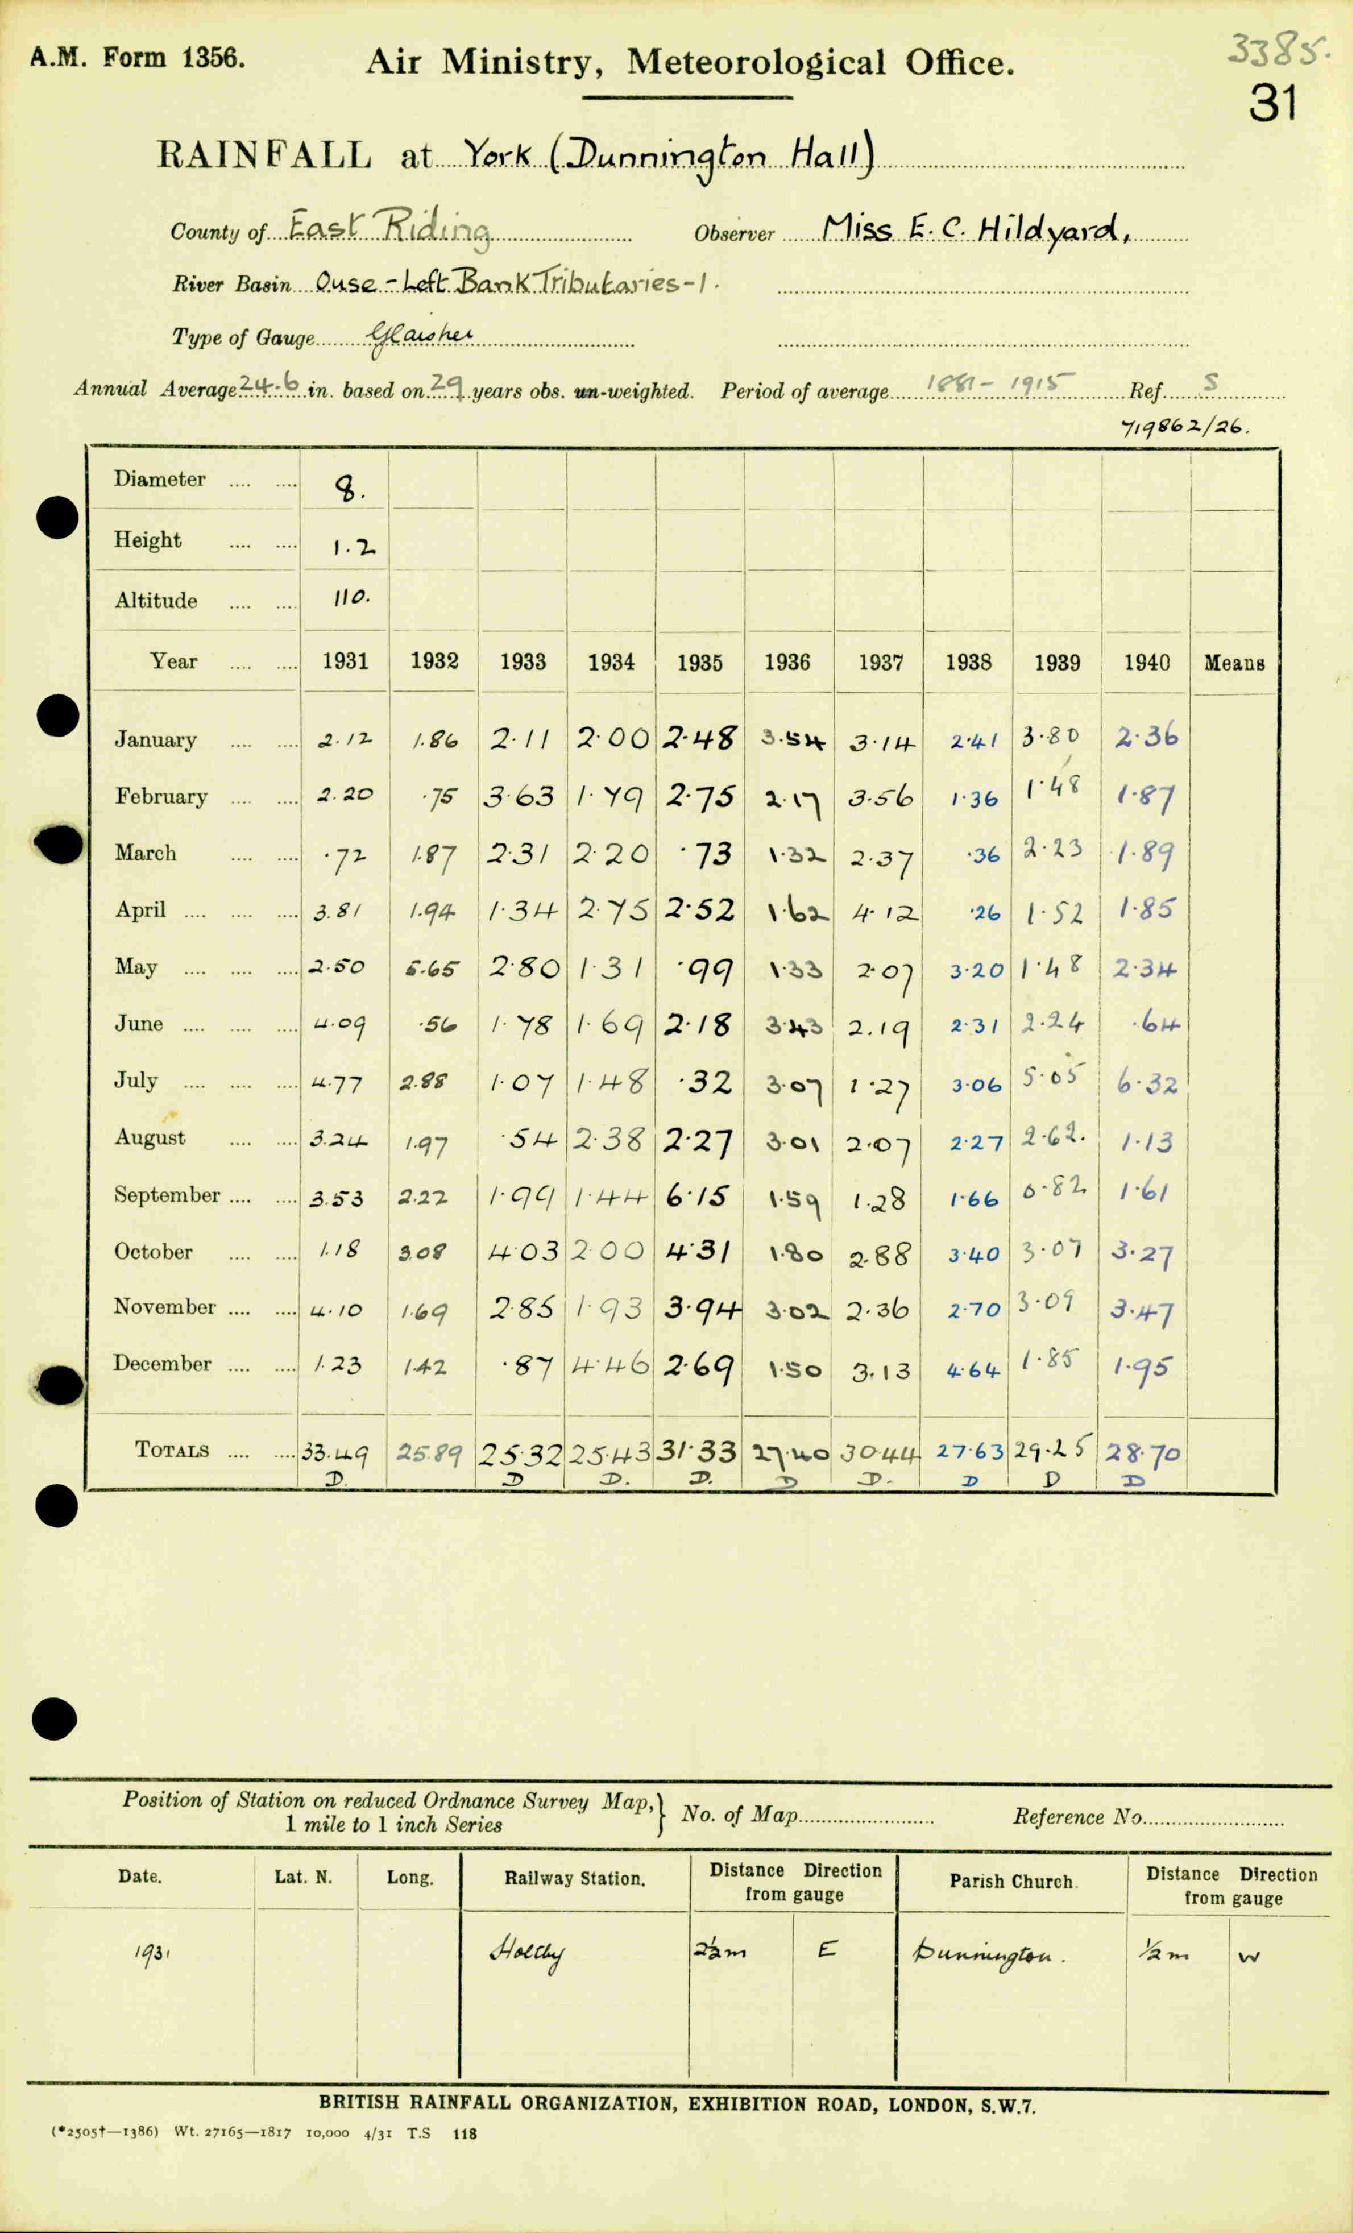 A.M. Form 1356.
Air Ministry, Meteorological Office.
3385.
31
RAINFALL at York (Dunnington Hall)
County of East Riding Observer Miss E. C. Hildyard,
River Basin Ouse - Left Bank Tributaries - 1.
Type of Gauge Glaisher
Annual Average 24.6 in. based on 29 years obs. un-weighted. Period of average 1881 - 1915 Ref. S
719862/26.
Diameter .... .... 8.
Height .... .... 1.2
Altitude .... .... 110.
Year .... .... 1931 1932 1933 1934 1935 1936 1937 1938 1939 1940 Means
January .... .... 2.12 1.86 2.11 2.00 2.48 3.54 3.14 2.41 3.80 2.36
February .... .... 2.20 .75 3.63 1.79 2.75 2.17 3.56 1.36 1.48 1.87
March .... .... .72 1.87 2.31 2.20 .73 1.32 2.37 .36 2.23 1.89
April .... .... .... 3.81 1.94 1.34 2.75 2.52 1.62 4.12 .26 1.52 1.85
May .... .... .... 2.50 5.65 2.80 1.31 .99 1.33 2.07 3.20 1.48 2.34
June .... .... .... 4.09 .56 1.78 1.69 2.18 3.43 2.19 2.31 2.24 .64
July .... .... .... 4.77 2.88 1.07 1.48 .32 3.07 1.27 3.06 5.05 6.32
August .... .... 3.24 1.97 .54 2.38 2.27 3.01 2.07 2.27 2.62. 1.13
September .... .... 3.53 2.22 1.99 1.44 6.15 1.59 1.28 1.66 0.82 1.61
October .... .... 1.18 3.08 4.03 2.00 4.31 1.80 2.88 3.40 3.07 3.27
November .... .... 4.10 1.69 2.85 1.93 3.94 3.02 2.36 2.70 3.09 3.47
December .... .... 1.23 1.42 .87 4.46 2.69 1.50 3.13 4.64 1.85 1.95
TOTALS .... .... 33.49 25.89 25.32 25.43 31.33 27.40 30.44 27.63 29.25 28.70
D. D D. D. D D. D D D
Position of Station on reduced Ordnance Survey Map,} No. of Map Reference No.
1 mile to 1 inch Series
Date. Lat. N. Long. Railway Station. Distance Direction from gauge Parish Church. Distance Direction from gauge
1931 Holtby 2½m E Dunnington. ½m W
BRITISH RAINFALL ORGANIZATION, EXHIBITION ROAD, LONDON, S.W.7.
(*2505†—1386) Wt. 27165—1817 10,000 4/31 T.S 118